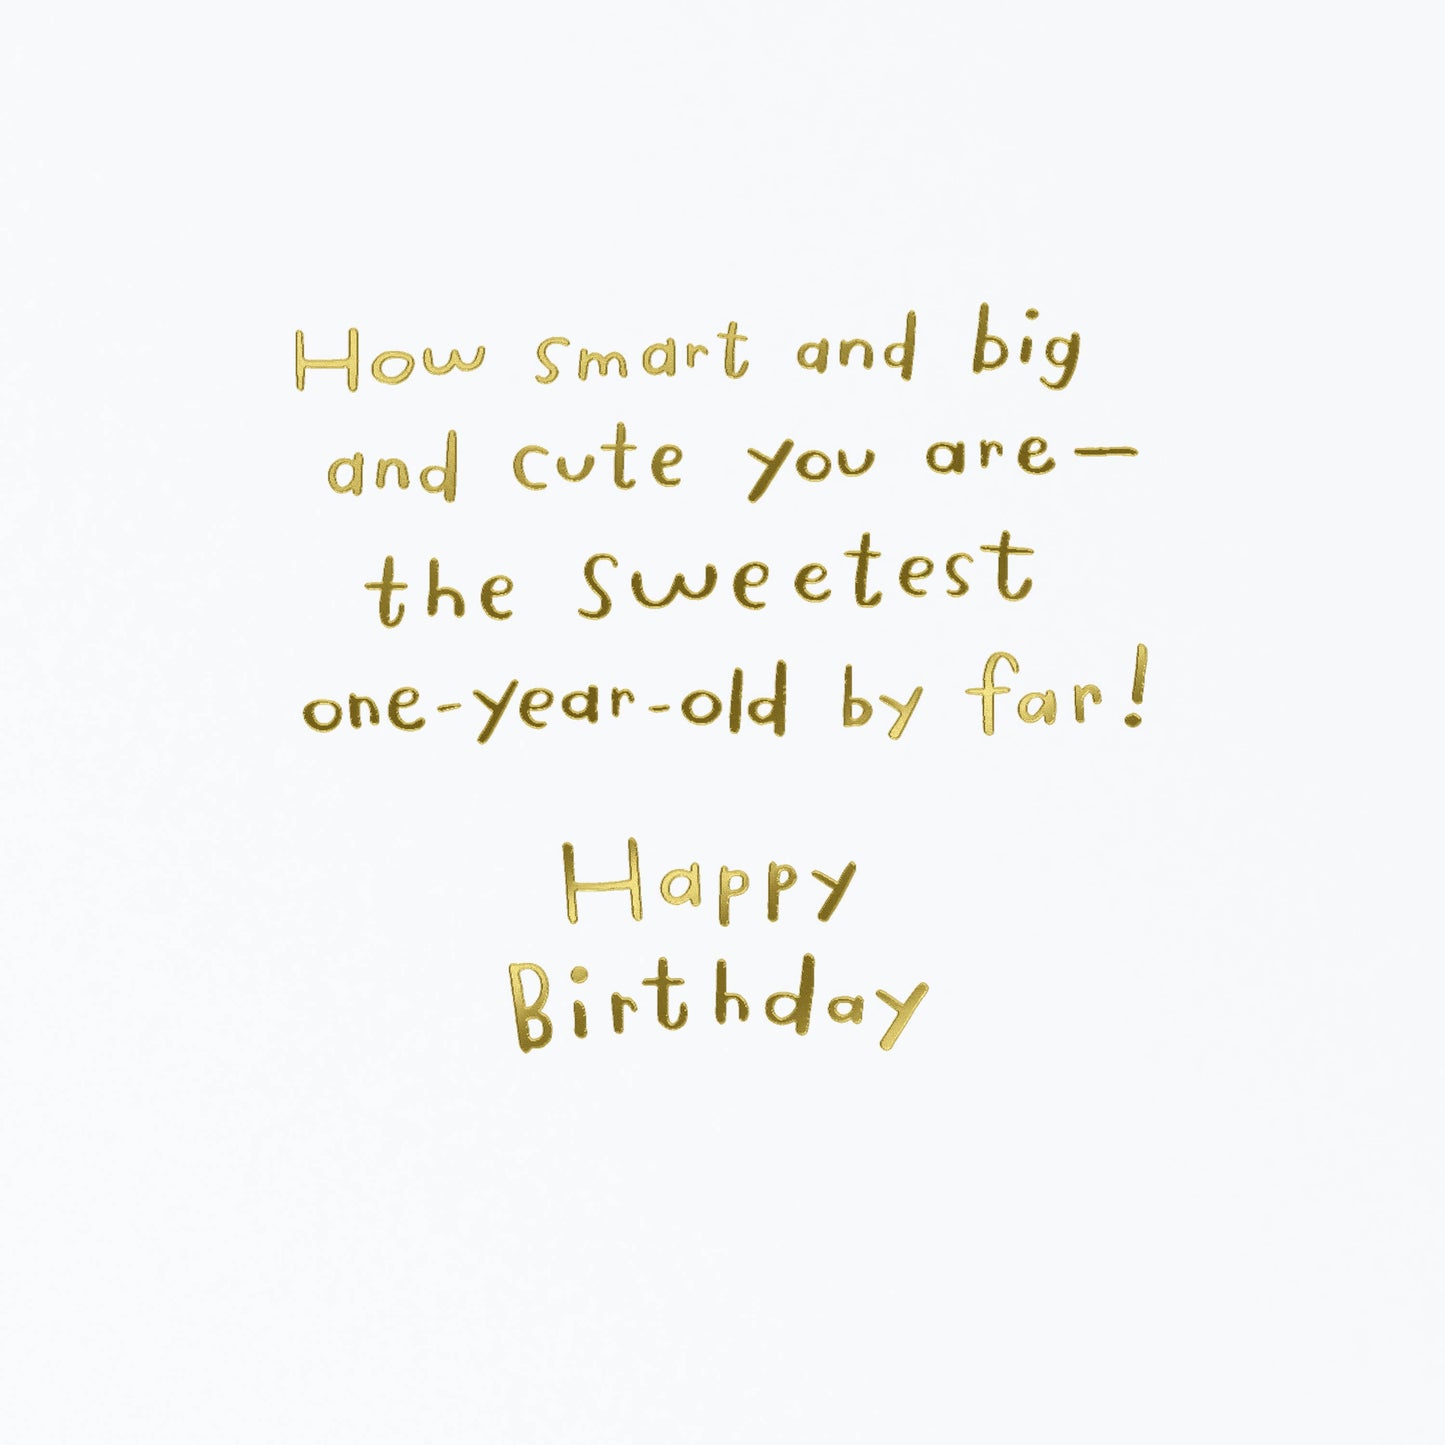 How smart and big
and cute you are—
the sweetest
one-year-old by far!
Happy
Birthday